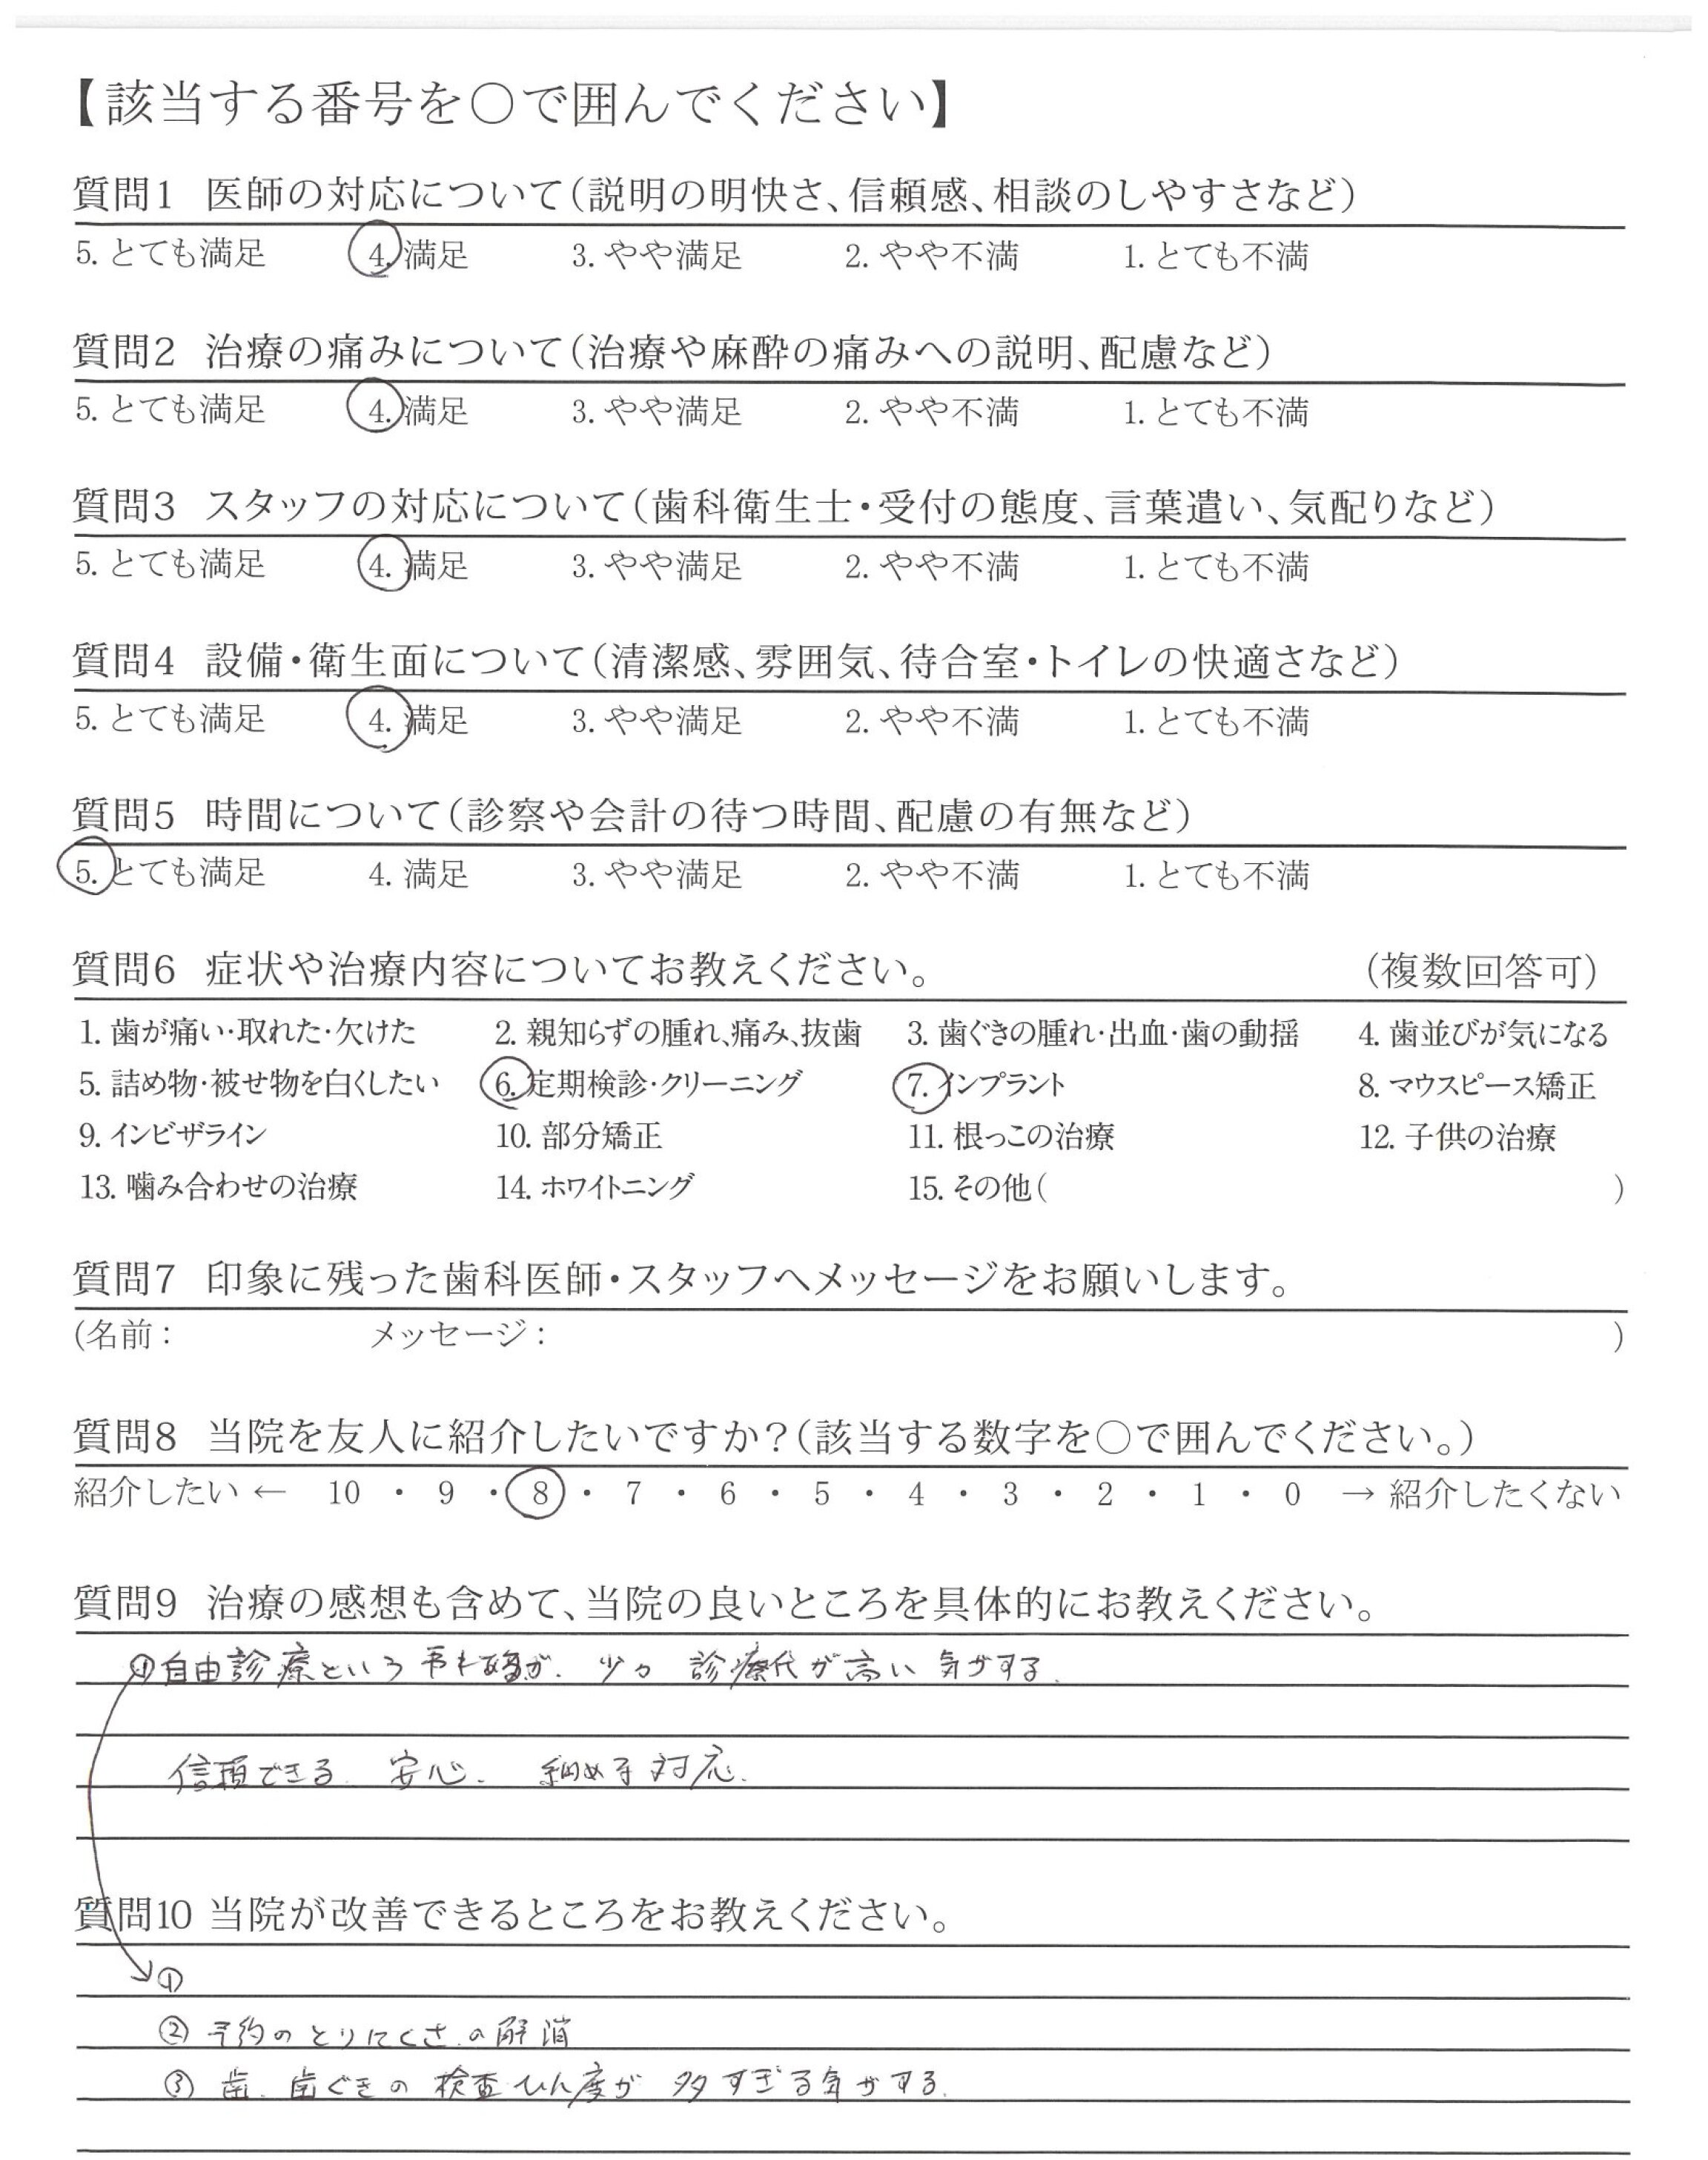 【該当する番号を○で囲んでください】
質問1 医師の対応について(説明の明快さ、信頼感、相談のしやすさなど)
5. とても満足 4. 満足 3. やや満足 2. やや不満 1. とても不満
質問2 治療の痛みについて(治療や麻酔の痛みへの説明、配慮など)
5. とても満足 4. 満足 3. やや満足 2. やや不満 1. とても不満
質問3 スタッフの対応について(歯科衛生士・受付の態度、言葉遣い、気配りなど)
5. とても満足 4. 満足 3. やや満足 2. やや不満 1. とても不満
質問4 設備・衛生面について(清潔感、雰囲気、待合室・トイレの快適さなど)
5. とても満足 4. 満足 3. やや満足 2. やや不満 1. とても不満
質問5 時間について(診察や会計の待つ時間、配慮の有無など)
5. とても満足 4. 満足 3. やや満足 2. やや不満 1. とても不満
質問6 症状や治療内容についてお教えください。 (複数回答可)
1. 歯が痛い・取れた・欠けた 2. 親知らずの腫れ、痛み、抜歯 3. 歯ぐきの腫れ・出血・歯の動揺 4. 歯並びが気になる
5. 詰め物・被せ物を白くしたい 6. 定期検診・クリーニング 7. インプラント 8. マウスピース矯正
9. インビザライン 10. 部分矯正 11. 根っこの治療 12. 子供の治療
13. 噛み合わせの治療 14. ホワイトニング 15. その他( )
質問7 印象に残った歯科医師・スタッフへメッセージをお願いします。
(名前： メッセージ： )
質問8 当院を友人に紹介したいですか？(該当する数字を○で囲んでください。)
紹介したい ← 10 ・ 9 ・ 8 ・ 7 ・ 6 ・ 5 ・ 4 ・ 3 ・ 2 ・ 1 ・ 0 → 紹介したくない
質問9 治療の感想も含めて、当院の良いところを具体的にお教えください。
①自由診療という 少々 診療代が高い気がする.
信頼できる. 安心. 対応.
質問10 当院が改善できるところをお教えください。
①
② 予約のとりにくさの解消
③ 歯. 歯ぐきの検査ひん度が多すぎる気がする.